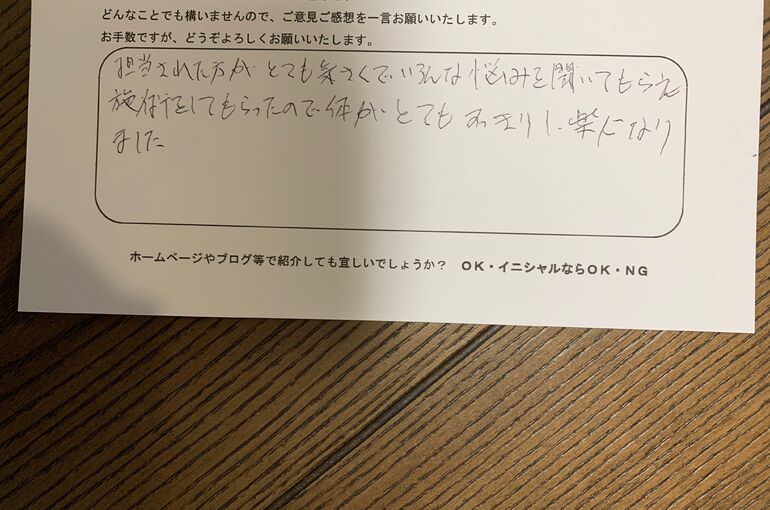 どんなことでも構いませんので、ご意見ご感想を一言お願いいたします。
お手数ですが、どうぞよろしくお願いいたします。
担当された方が とても気さくで、いろんな悩みを聞いてもらえ
施術をしてもらったので体が とても すっきりし、楽になり
ました
ホームページやブログ等で紹介しても宜しいでしょうか? OK・イニシャルならOK・NG